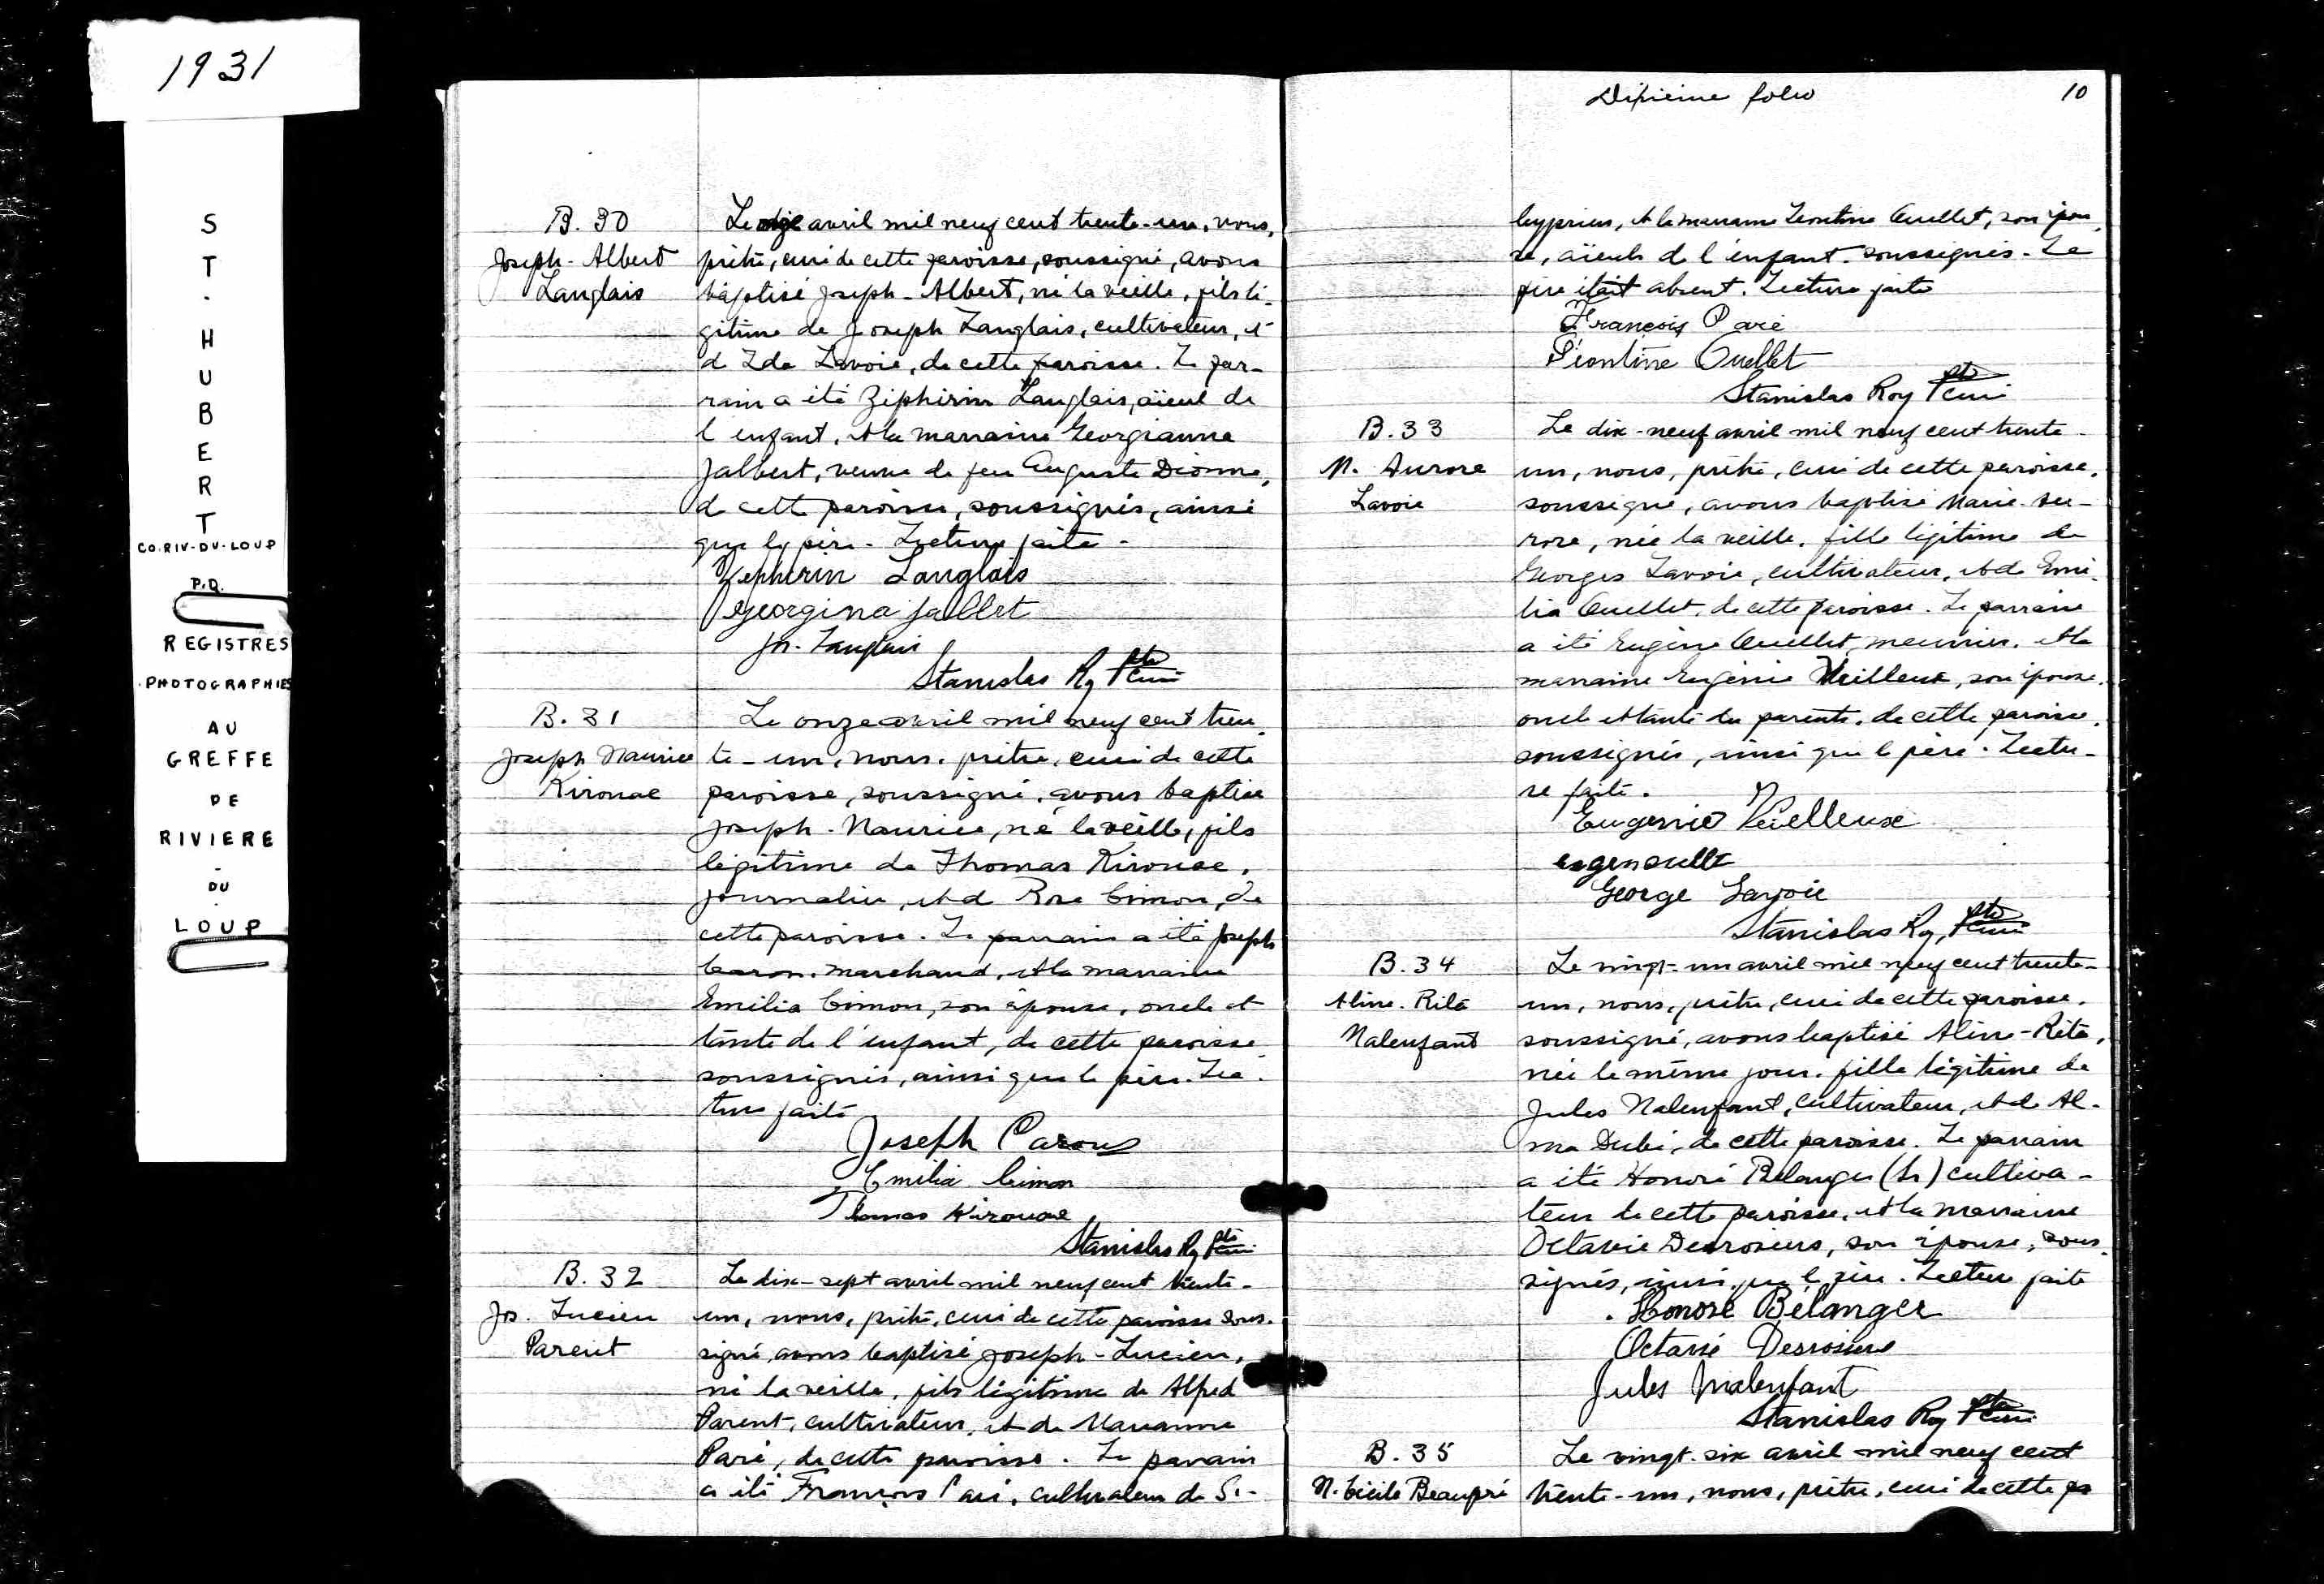 1931
S
T
.
H
U
B
E
R
T
CO. RIV-DU-LOUP
P.Q.
REGISTRES
PHOTOGRAPHIES
AU
GREFFE
DE
RIVIERE
-
DU
-
LOUP
B. 30
Joseph-Albert
Langlais
Le avril mil neuf cent trente-un, nous,
prêtre, curé de cette paroisse, soussigné, avons
baptisé Joseph-Albert, né la veille, fils lé-
gitime de Joseph Langlais, cultivateur, et
de Ida Lavoie, de cette paroisse. Le par-
rain a été Zéphirin Langlais, aïeul de
l'enfant, et la marraine Georgianna
Jalbert, veuve de feu Auguste Dionne,
de cette paroisse, soussignés, ainsi
que le père. Lecture faite.
Zephirin Langlais
Georgina Jalbert
Jos. Langlais
Stanislas Roy Ptre Curé
B. 31
Joseph Maurice
Kirouac
Le onze avril mil neuf cent tren-
te-un, nous, prêtre, curé de cette
paroisse, soussigné, avons baptisé
Joseph-Maurice, né la veille, fils
légitime de Thomas Kirouac,
journalier, et de Rose Cimon, de
cette paroisse. Le parrain a été Joseph
Caron, marchand, et la marraine
Emilia Cimon, son épouse, oncle et
tante de l'enfant, de cette paroisse
soussignés, ainsi que le père. Lec-
ture faite
Joseph Caron
Emilia Cimon
Thomas Kirouac
Stanislas Roy Ptre Curé
B. 32
Jos. Lucien
Parent
Le dix-sept avril mil neuf cent trente-
un, nous, prêtre, curé de cette paroisse sous-
signé, avons baptisé Joseph-Lucien,
né la veille, fils légitime de Alfred
Parent, cultivateur, et de Marianne
Paré, de cette paroisse. Le parrain
a été François Paré, cultivateur de St-
Dixième folio
10
Cyprien, et la marraine Léontine Ouellet, son épou-
se, aïeuls de l'enfant, soussignés. Le
père était absent. Lecture faite
François Paré
Léontine Ouellet
Stanislas Roy Ptre Curé
B. 33
M. Aurore
Lavoie
Le dix-neuf avril mil neuf cent trente-
un, nous, prêtre, curé de cette paroisse,
soussigné, avons baptisé Marie-Au-
rore, née la veille, fille légitime de
Georges Lavoie, cultivateur, et de Emi-
lia Ouellet, de cette paroisse. Le parrain
a été Eugène Ouellet, meunier, et la
marraine Eugénie Veilleux, son épouse,
oncle et tante de de cette paroisse,
soussignés, ainsi que le père. Lectu-
re faite.
Eugenie Veilleux
George Lavoie
Stanislas Roy, Ptre Curé
B. 34
Aline-Rita
Malenfant
Le vingt-un avril mil neuf cent trente-
un, nous, prêtre, curé de cette paroisse,
soussigné, avons baptisé Aline-Rita,
née le même jour, fille légitime de
Jules Malenfant, cultivateur, et de Al-
ma Dubé, de cette paroisse. Le parrain
a été Honoré Bélanger cultiva-
teur de cette paroisse, et la marraine
Octavie Desrosiers, son épouse, sous-
signés, ainsi que le père. Lecture faite
Honoré Bélanger
Octavie Desrosiers
Jules Malenfant
Stanislas Roy Ptre Curé
B. 35
M. Cécile Beaupré
Le vingt-six avril mil neuf cent
trente-un, nous, prêtre, curé de cette pa